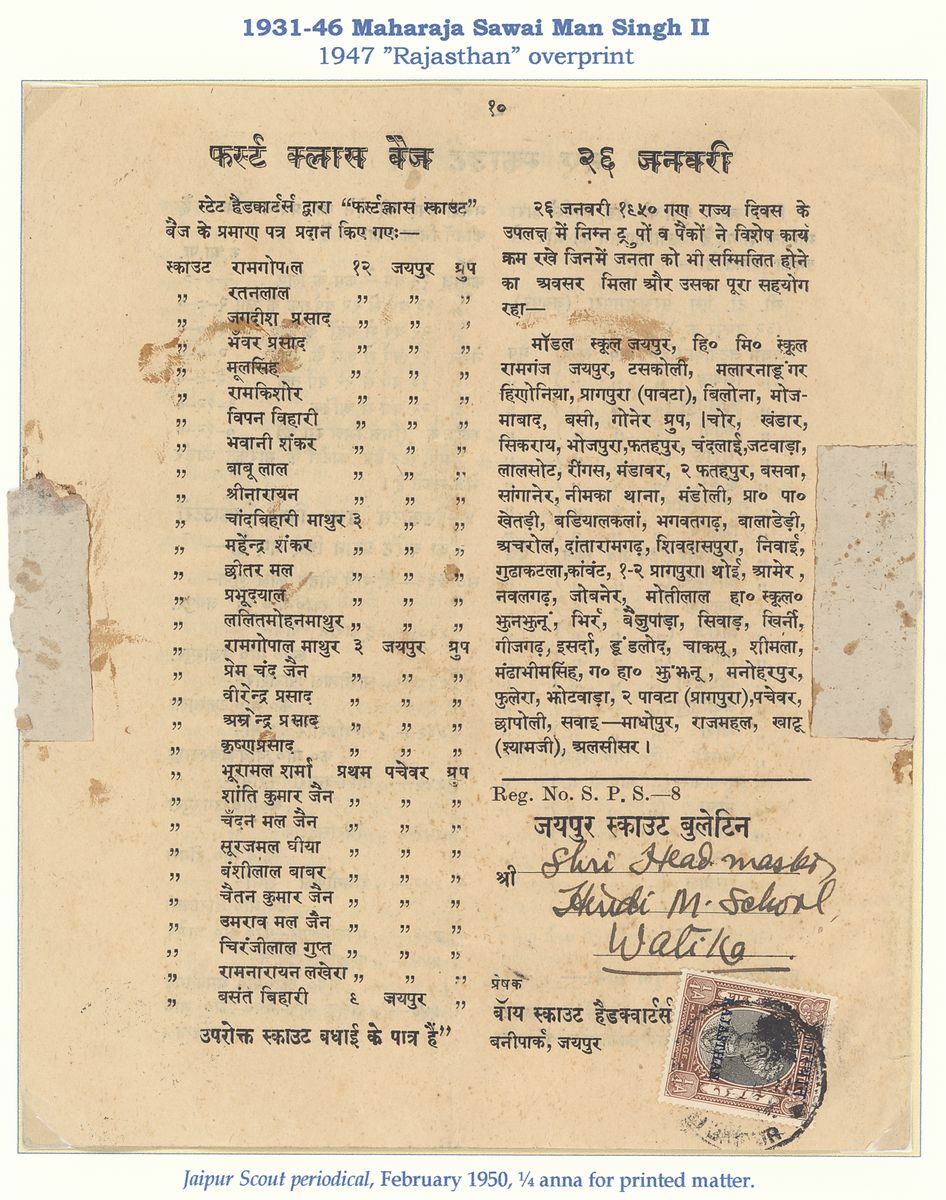 1931-46 Maharaja Sawai Man Singh II
1947 ”Rajasthan” overprint
१०
फर्स्ट क्लास बैज
स्टेट हैडक्वार्टर्स द्वारा “फर्स्टक्लास स्काउट”
बैज के प्रमाण पत्र प्रदान किए गएः—
स्काउट रामगोपाल १२ जयपुर ग्रुप
„ रतनलाल „ „ „
„ जगदीश प्रसाद „ „ „
„ भँवर प्रसाद „ „ „
„ मूलसिंह „ „ „
„ रामकिशोर „ „ „
„ विपन विहारी „ „ „
„ भवानी शंकर „ „ „
„ बाबू लाल „ „ „
„ श्रीनारायन „ „ „
„ चांदबिहारी माथुर ३ „ „
„ महेंन्द्र शंकर „ „ „
„ छीतर मल „ „ „
„ प्रभूदयाल „ „ „
„ ललितमोहनमाथुर „ „ „
„ रामगोपाल माथुर ३ जयपुर ग्रुप
„ प्रेम चंद जैन „ „ „
„ वीरेन्द्र प्रसाद „ „ „
„ अम्रेन्द्र प्रसाद „ „ „
„ कृष्णप्रसाद „ „ „
„ भूरामल शर्मा प्रथम पचेवर ग्रुप
„ शांति कुमार जैन „ „ „
„ चँदन मल जैन „ „ „
„ सूरजमल घीया „ „ „
„ बंशीलाल बाबर „ „ „
„ चैतन कुमार जैन „ „ „
„ उमराव मल जैन „ „ „
„ चिरंजीलाल गुप्त „ „ „
„ रामनारायन लखेरा „ „ „
„ बसंत बिहारी ६ जयपुर „
उपरोक्त स्काउट बधाई के पात्र हैं”
२६ जनवरी
२६ जनवरी १९५० गण राज्य दिवस के
उपलक्ष में निम्न ट्रुपों व पैकों ने विशेष कार्य
क्रम रखे जिनमें जनता को भी सम्मिलित होने
का अवसर मिला और उसका पूरा सहयोग
रहा—
मॉडल स्कूल जयपुर, हि० मि० स्कूल
रामगंज जयपुर, टसकोली, मलारनाडूंगर
हिंगोनिया, प्रागपुरा (पावटा), बिलोना, मोज-
माबाद, बसी, गोनेर ग्रुप, चोर, खंडार,
सिकराय, भोजपुरा,फतहपुर, चंदलाई,जटवाड़ा,
लालसोट, रींगस, मंडावर, २ फतहपुर, बसवा,
सांगानेर, नीमका थाना, मंडोली, प्रा० पा०
खेतड़ी, बडियालकलां, भगवतगढ़, बालाडेड़ी,
अचरोल, दांतारामगढ़, शिवदासपुरा, निवाई,
गुढाकटला,कांवंट, १-२ प्रागपुरा। थोई, आमेर,
नवलगढ़, जोबनेर, मोतीलाल हा० स्कूल०
झुनझुनूं, भिर्र, बैजुपाड़ा, सिवाड़, खिर्नी,
गीजगढ़, इसर्दा, डूंडलोद, चाकसू, शीमला,
मंढाभीमसिंह, ग० हा० झुंझनू, मनोहरपुर,
फुलेरा, झोटवाड़ा, २ पावटा (प्रागपुरा),पचेवर,
छापोली, सवाइ—माधोपुर, राजमहल, खाटू
(श्यामजी), अलसीसर।
Reg. No. S. P. S.—8
जयपुर स्काउट बुलेटिन
श्री Shri Head master
Hindi M. School,
Watika
प्रेषक
बॉय स्काउट हैडक्वार्टर्स
बनीपार्क, जयपुर
RAJASTHAN
Jaipur Scout periodical, February 1950, ¼ anna for printed matter.